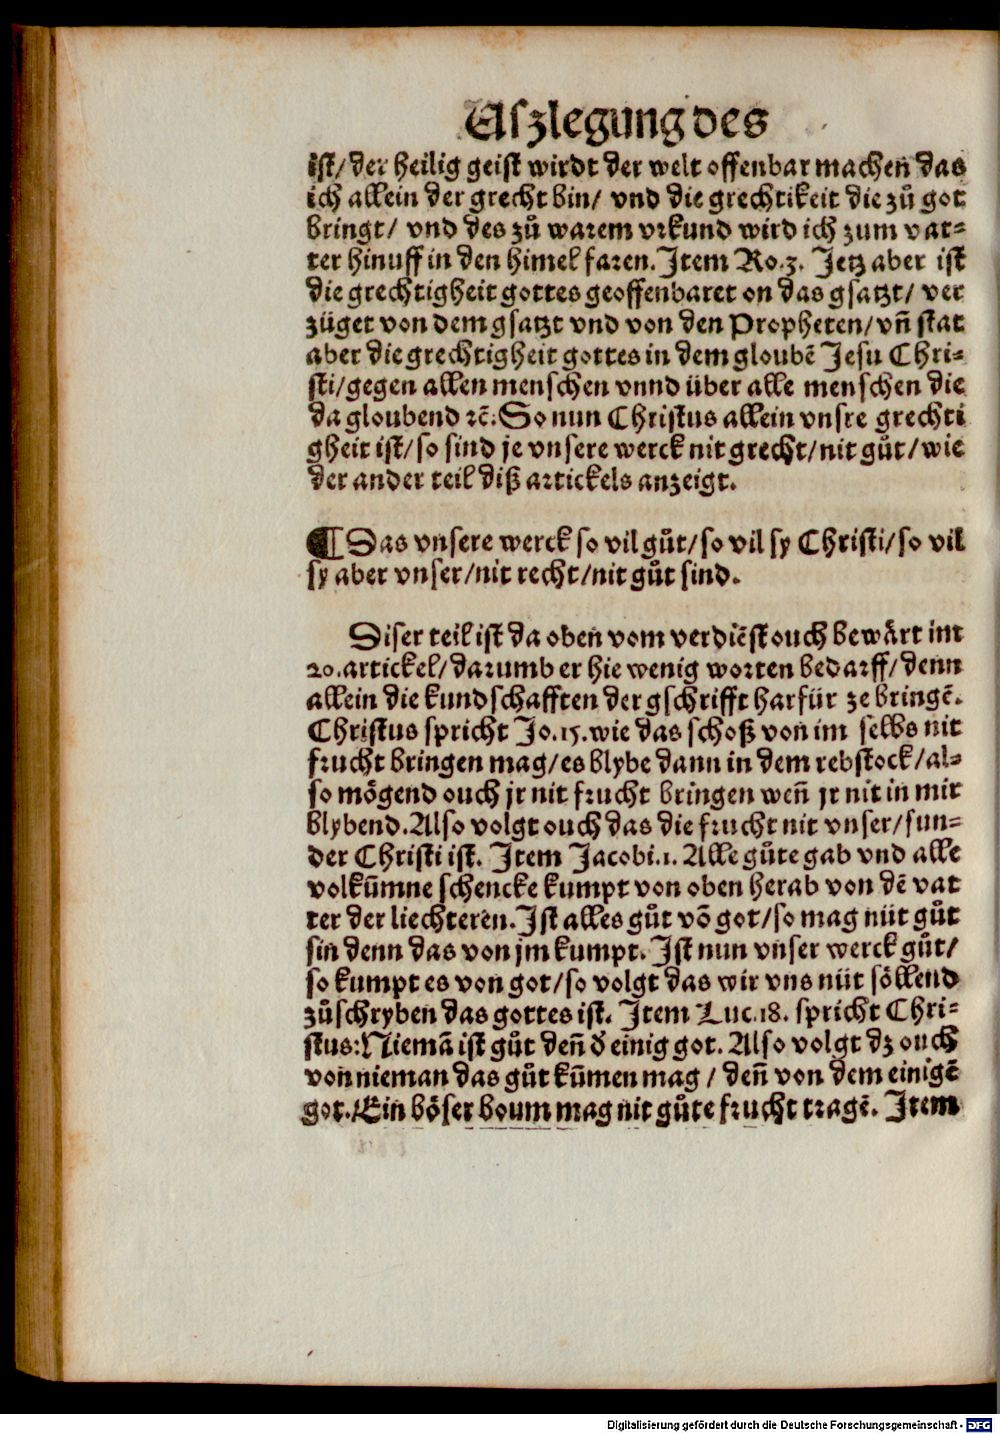 Uſzlegung des
iſt/ der heilig geiſt wirdt der welt offenbar machen das
ich allein der grecht bin/ vnd die grechtikeit die zů got
bringt/ vnd des zů warem vrkund wird ich zum vat⸗
ter hinuff in den himel faren. Item Ro.3. Jetz aber iſt
die grechtigheit gottes geoffenbaret on das gſatzt/ ver
züget von dem gſatzt vnd von den Propheten/ vñ ſtat
aber die grechtigheit gottes in dem gloubē Jeſu Chri⸗
ſti/ gegen allen menſchen vnnd über alle menſchen die
da gloubend ꝛc̄. So nun Chriſtus allein vnſre grechti
gheit iſt/ ſo ſind je vnſere werck nit grecht/ nit gůt/ wie
der ander teil diß artickels anzeigt.
¶ Das vnſere werck ſo vil gůt/ ſo vil ſy Chriſti/ ſo vil
ſy aber vnſer/ nit recht/ nit gůt ſind.
Diſer teil iſt da oben vom verdiēſt ouch bewärt im
20. artickel/ darumb er hie wenig worten bedarff/ denn
allein die kundſchafften der gſchrifft harfür ze bringē.
Chriſtus ſpricht Jo.15. wie das ſchoß von im ſelbs nit
frucht bringen mag/ es blybe dann in dem rebſtock/ al⸗
ſo mögend ouch jr nit frucht bringen weñ jr nit in mir
blybend. Alſo volgt ouch das die frucht nit vnſer/ ſun⸗
der Chriſti iſt. Item Jacobi.1. Alle gůte gab vnd alle
volkūmne ſchencke kumpt von oben herab von dē vat
ter der liechteren. Iſt alles gůt vō got/ ſo mag nüt gůt
ſin denn das von jm kumpt. Iſt nun vnſer werck gůt/
ſo kumpt es von got/ ſo volgt das wir vns nüt ſöllend
zůſchryben das gottes iſt. Item Luc.18. ſpricht Chri⸗
ſtus: Niemā iſt gůt deñ d̕ einig got. Alſo volgt dz ouch
von nieman das gůt kūmen mag / deñ von dem einigē
got. Ein böſer boum mag nit gůte frucht tragē. Item
Digitalisierung gefördert durch die Deutsche Forschungsgemeinschaft - DFG